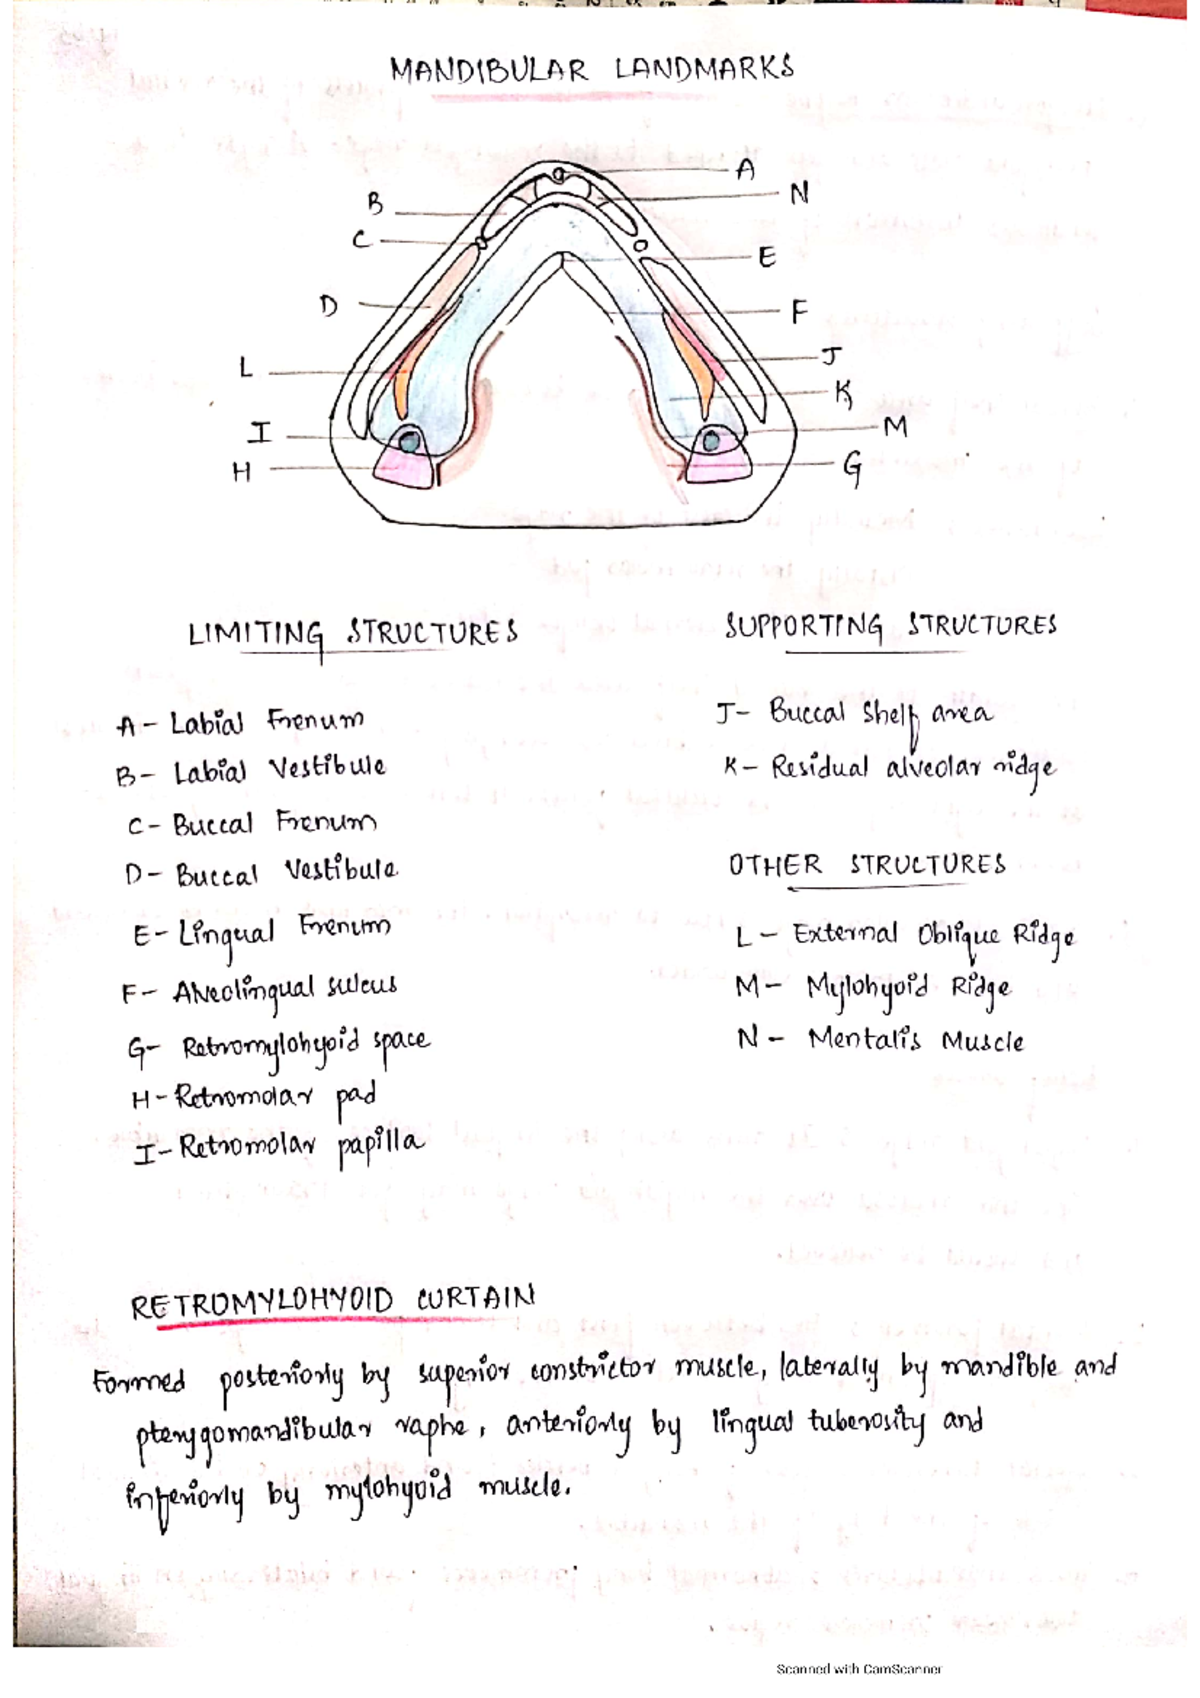 MANDIBULAR LANDMARKS
A
N
B
C
E
D
F
L
J
K
I
M
H
G
LIMITING STRUCTURES
A - Labial Frenum
B - Labial Vestibule
C - Buccal Frenum
D - Buccal Vestibule
E - Lingual Frenum
F - Alveolingual sulcus
G - Retromylohyoid space
H - Retromolar pad
I - Retromolar papilla
SUPPORTING STRUCTURES
J - Buccal Shelf area
K - Residual alveolar ridge
OTHER STRUCTURES
L - External Oblique Ridge
M - Mylohyoid Ridge
N - Mentalis Muscle
RETROMYLOHYOID CURTAIN
Formed posteriorly by superior constrictor muscle, laterally by mandible and
pterygomandibular raphe, anteriorly by lingual tuberosity and
inferiorly by mylohyoid muscle.
Scanned with CamScanner